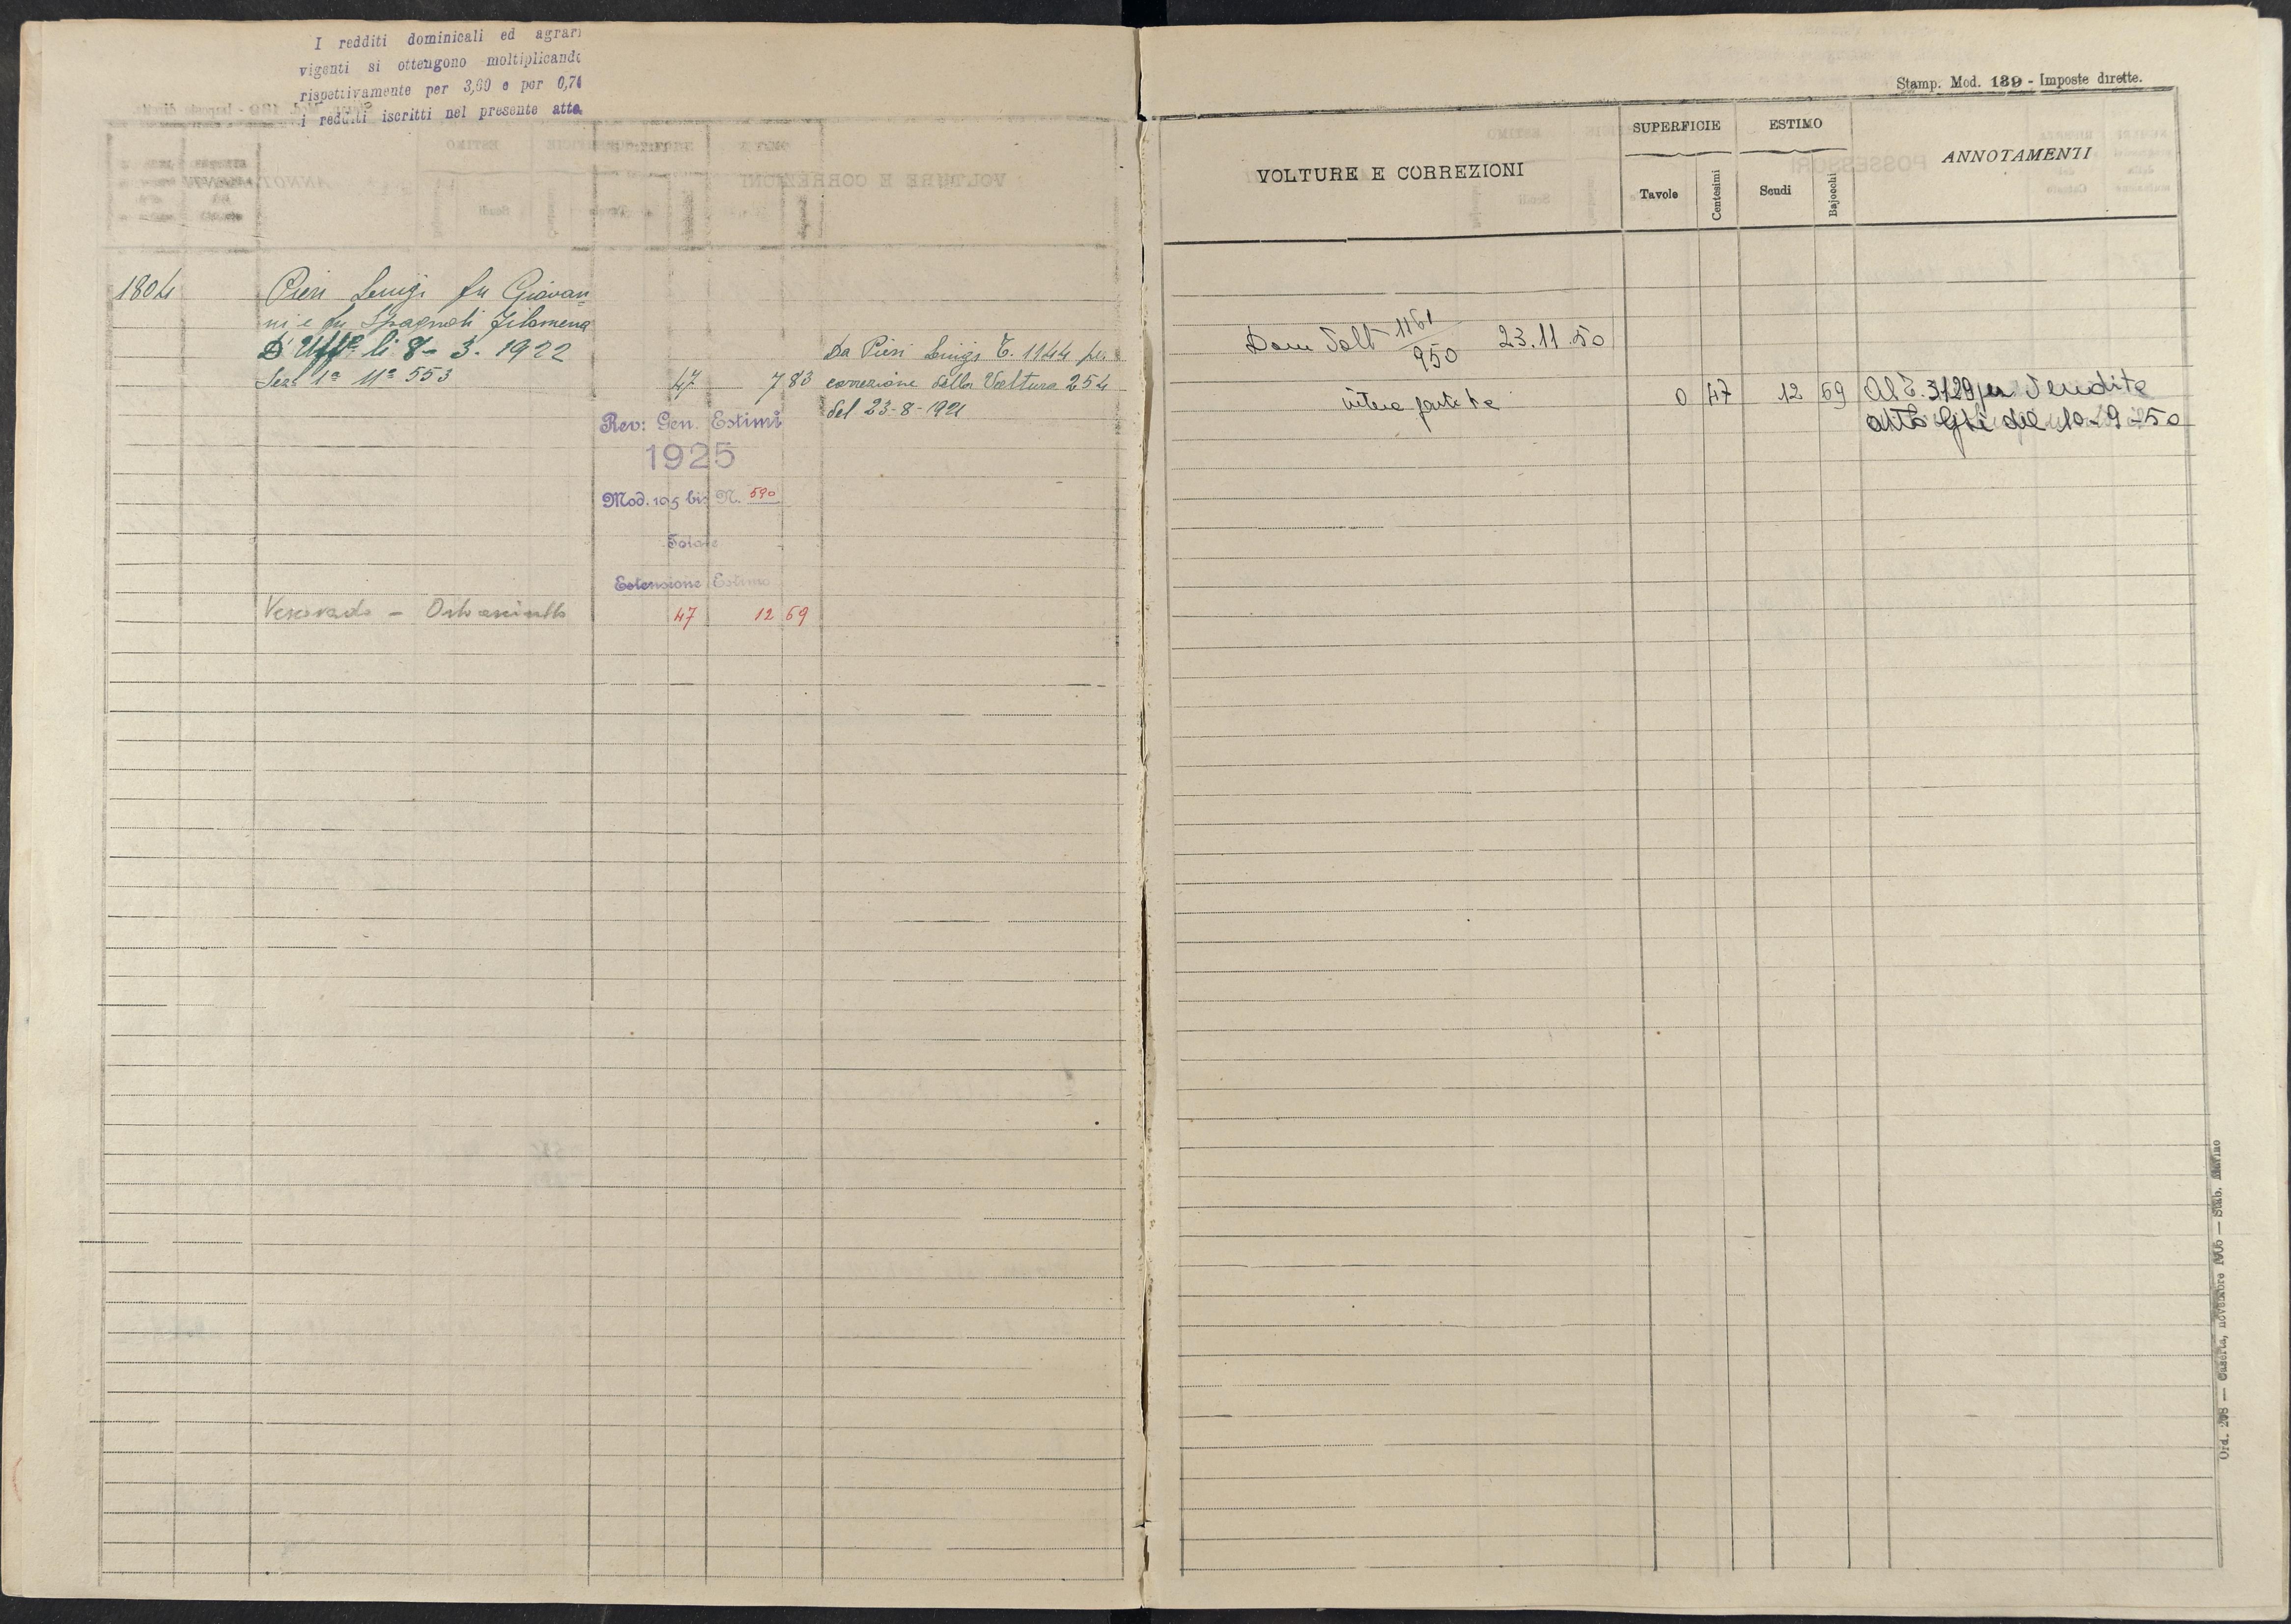 I redditi dominicali ed agrari
vigenti si ottengono moltiplicando
rispettivamente per 3,60 e per 0,74
i redditi iscritti nel presente atto.
1804
Pieri Luigi fu Giovan
ni e fu Spagnoli Filomena
D'Uff° li 8 - 3. 1922
Sez 1ª n° 553
47 7 83
Da Pieri Luigi T. 1144 per
correzione della Voltura 254
del 23-8-1921
Rev: Gen. Estimi
1925
Mod. 105 bis N. 590
Totale
Estensione Estimo
Vescovado -
47 12 69
Stamp. Mod. 139 - Imposte dirette.
VOLTURE E CORREZIONI
SUPERFICIE
ESTIMO
ANNOTAMENTI
Tavole
Centesimi
Scudi
Bajocchi
Dom Volt 1161/950 23.11.50
intera partita 0 47 12 69 Al T. 3129 per Vendita
atto del 10-9-50
Ord. 208 — Caserta, novembre 1905 — Stab. Marino